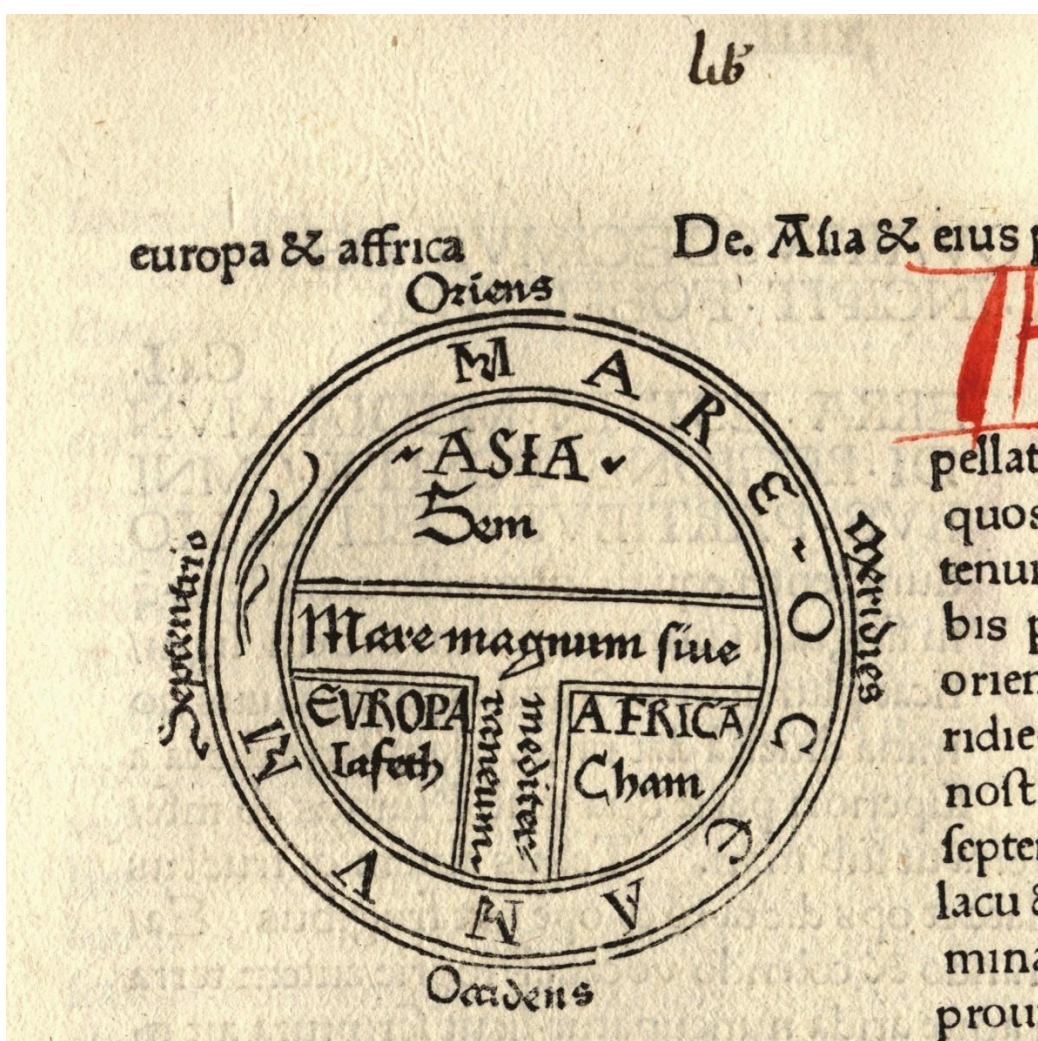 lib
europa & affrica
De. Asia & eius p
Oriens
MARE OCCEANVM
ASIA
Sem
Septentrio
Meridies
Mare magnum siue
mediter
raneum
EVROPA
Iafeth
AFRICA
Cham
Occidens
pellat
quos
tenur
bis p
orien
ridie
nost
septen
lacu &
mina
prou